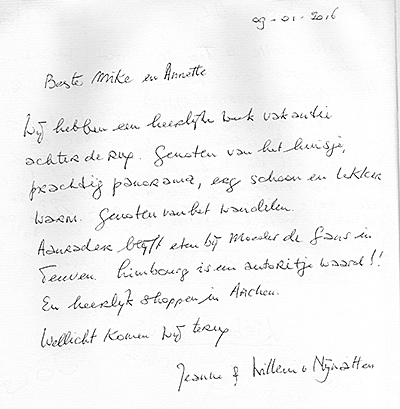 03-01-2016
Beste Mike en Annette
Wij hebben een heerlijke week vakantie
achter de rug. Genoten van het huisje,
prachtig panorama, erg schoon en lekker
warm. Genoten van het wandelen.
Aanrader blijft eten bij Moeder de Gans in
Teuven. Limbourg is een autoritje waard!!
En heerlijk shoppen in Aachen.
Wellicht komen wij terug
Jeanne & Willem v Nynatten